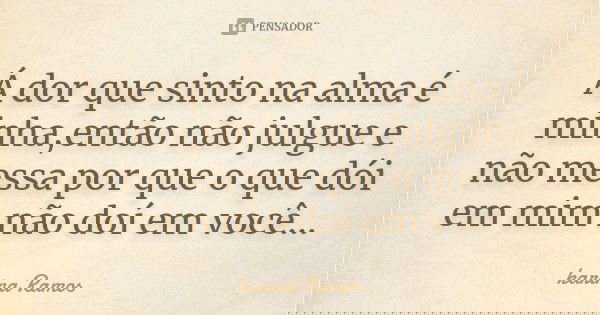 PENSADOR
Á dor que sinto na alma é
minha,então não julgue e
não messa por que o que dói
em mim não doí em você...
karina Ramos